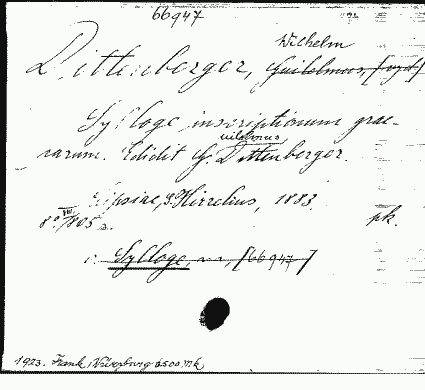 66947
Wilhelm
Dittenberger, Guilelmus,
Sylloge inscriptionum grae-
carum. Edidit G. Dittenberger.
uilelmus
Lipsiae, S. Hirzelius, 1883.
8° 805 s. pk.
Sylloge, [66947]
1923. Frank, Würzburg 6500 Mk